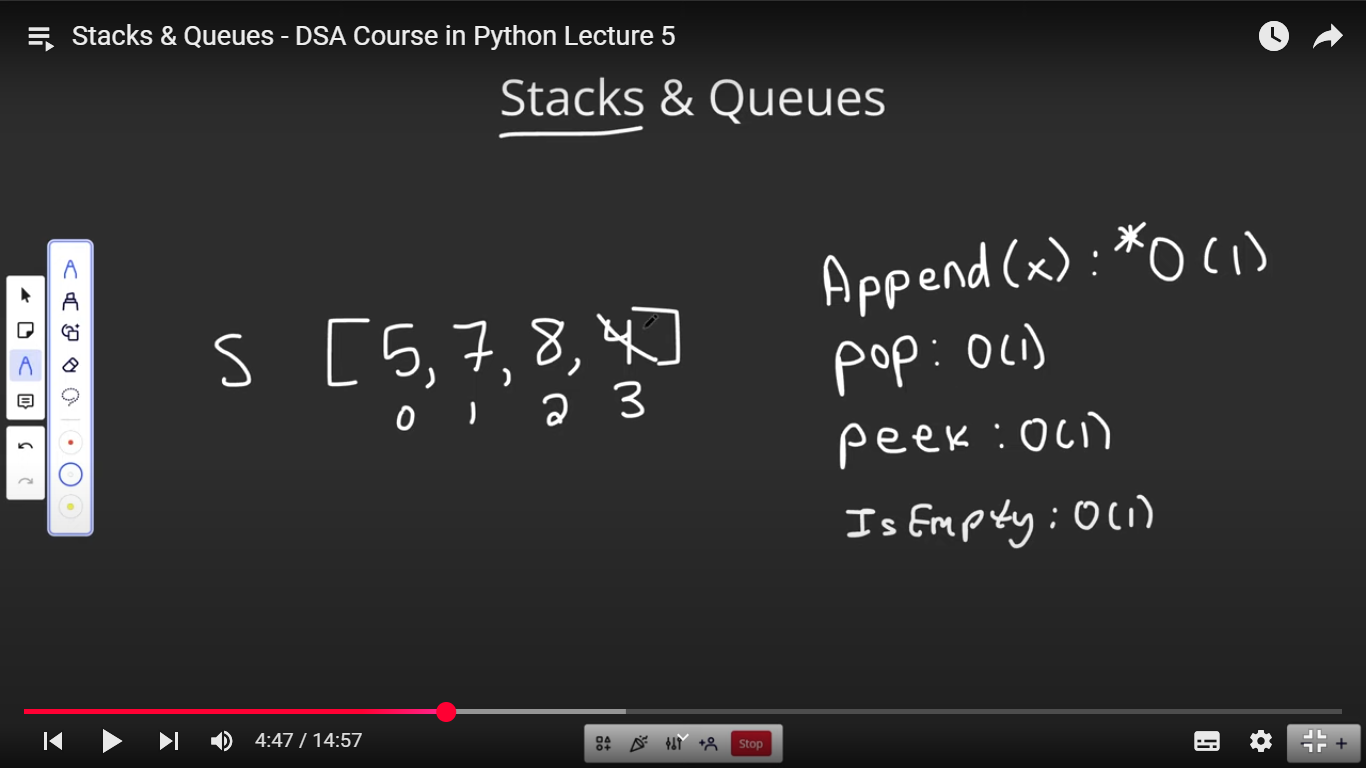 Stacks & Queues - DSA Course in Python Lecture 5
Stacks & Queues
Append(x): *O(1)
S [5, 7, 8, 4]
0 1 2 3
pop: O(1)
peek: O(1)
IsEmpty: O(1)
4:47 / 14:57
Stop